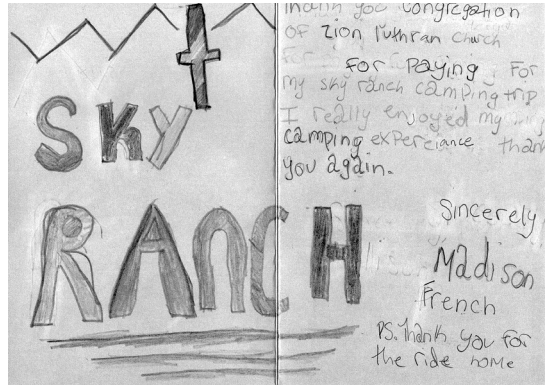 SKY
RANCH
Thank you congregation
of zion luthran church
for paying. For
my sky ranch camping trip
I really enjoyed my
camping experciance thank
you again.
Sincerely
Madison
French
PS. Thank you for
the ride home